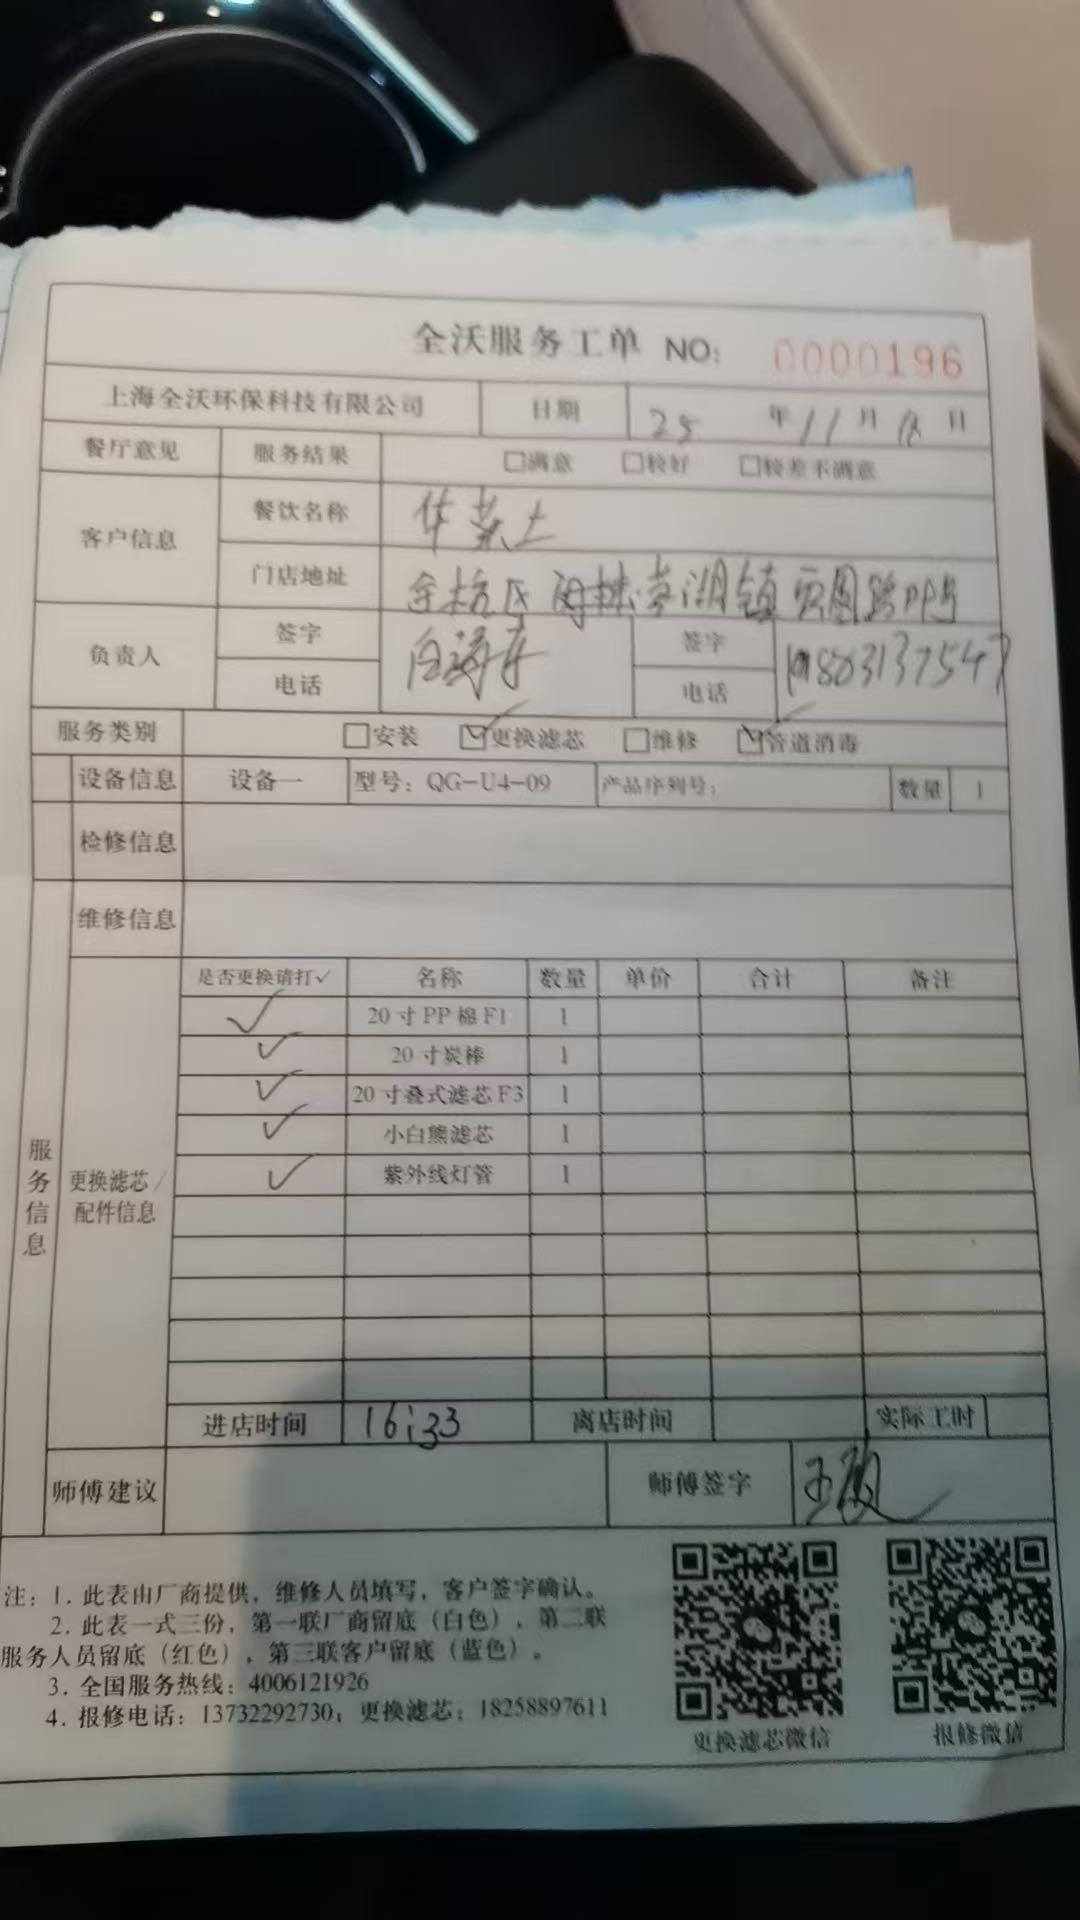 全沃服务工单 NO: 0000196
上海全沃环保科技有限公司 日期 25 年 11 月 日
餐厅意见 服务结果 □满意 □较好 □较差不满意
客户信息 餐饮名称 华莱士
门店地址 余杭区 湖镇
负责人 签字 签字
电话 电话
服务类别 □安装 ☑更换滤芯 □维修 ☑管道消毒
设备信息 设备一 型号：QG-U4-09 产品序列号： 数量 1
检修信息
维修信息
服务信息
更换滤芯/配件信息
是否更换请打✓ 名称 数量 单价 合计 备注
✓ 20寸PP棉F1 1
✓ 20寸炭棒 1
✓ 20寸叠式滤芯F3 1
✓ 小白熊滤芯 1
✓ 紫外线灯管 1
进店时间 16:33 离店时间 实际工时
师傅建议 师傅签字
注：1. 此表由厂商提供，维修人员填写，客户签字确认。
2. 此表一式三份，第一联厂商留底（白色），第二联
服务人员留底（红色），第三联客户留底（蓝色）。
3. 全国服务热线：4006121926
4. 报修电话：13732292730；更换滤芯：18258897611
更换滤芯微信 报修微信